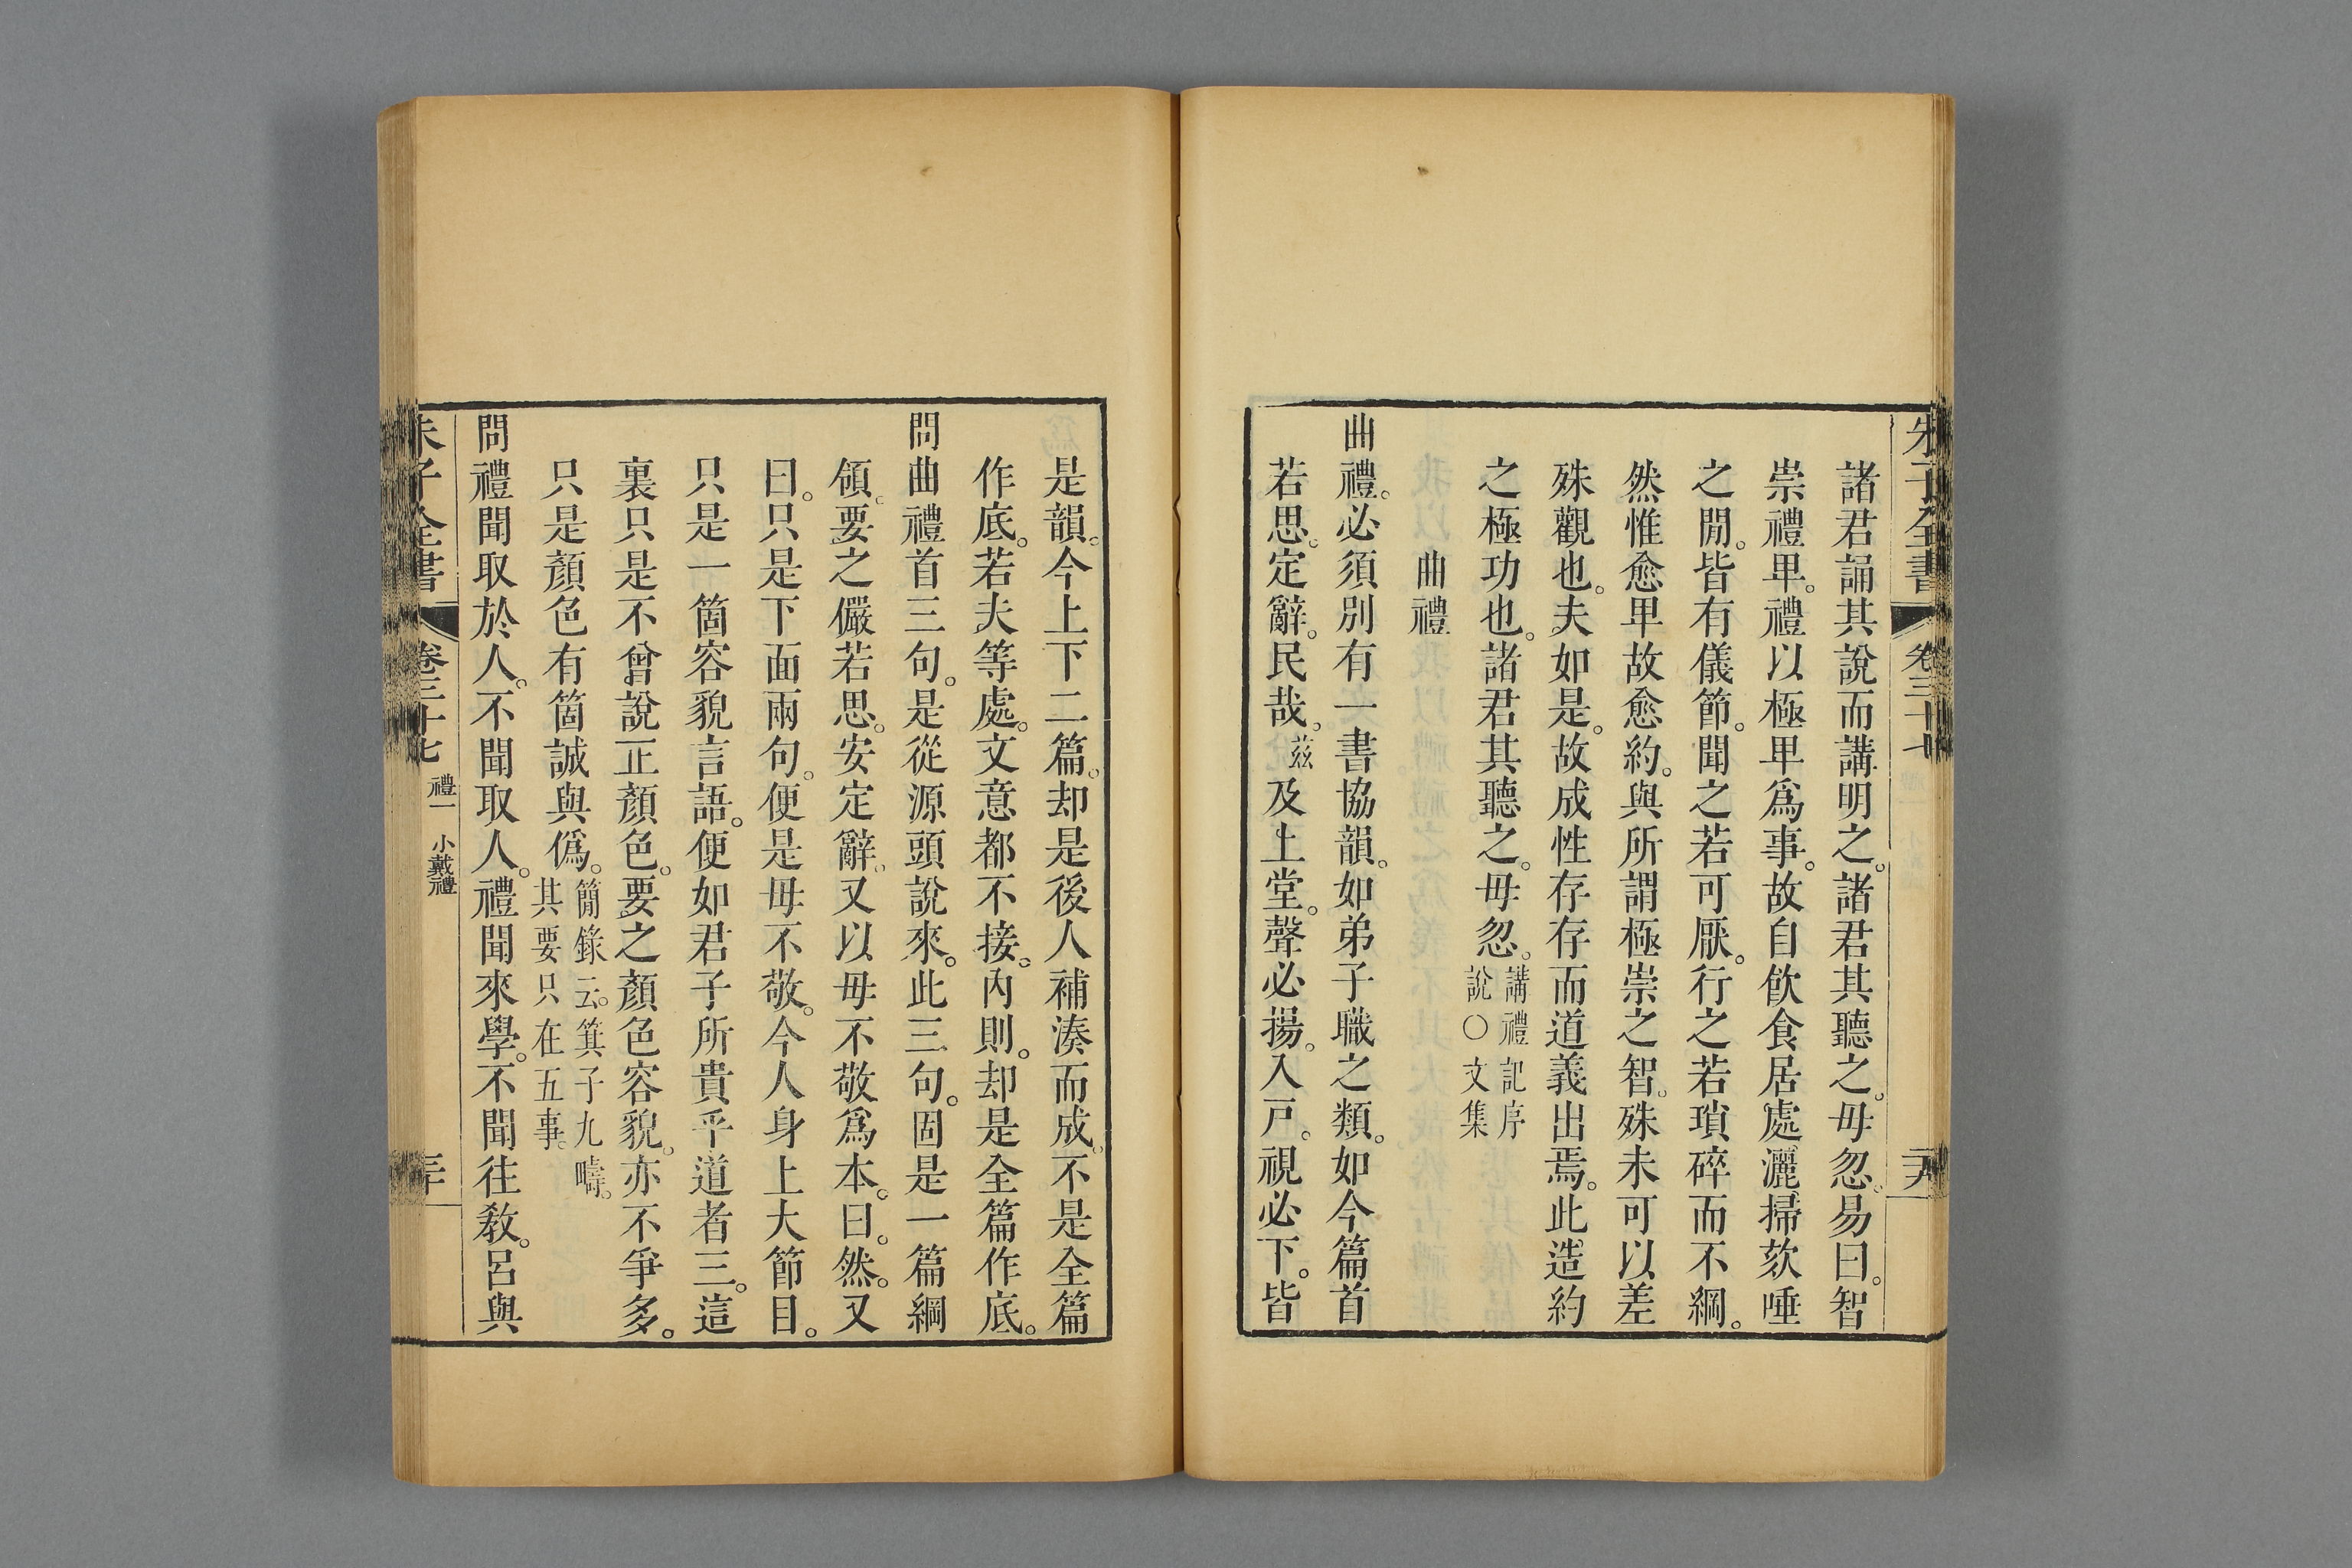 朱子全書 卷三十七 二十九
諸君誦其說而講明之。諸君其聽之。毋忽。易曰。智
崇禮卑。禮以極卑爲事。故自飲食居處灑掃欬唾
之閒。皆有儀節。聞之若可厭。行之若瑣碎而不綱。
然惟愈卑故愈約。與所謂極崇之智。殊未可以差
殊觀也。夫如是。故成性存存而道義出焉。此造約
之極功也。諸君其聽之。毋忽。講禮記序
說○文集
曲禮
曲禮。必須別有一書協韻。如弟子職之類。如今篇首
若思。定辭。民哉。茲及上堂。聲必揚。入戸。視必下。皆
是韻。今上下二篇。却是後人補湊而成。不是全篇
作底。若夫等處。文意都不接。內則。却是全篇作底。
問曲禮首三句。是從源頭說來。此三句。固是一篇綱
領。要之儼若思。安定辭。又以毋不敬爲本。曰。然。又
曰。只是下面兩句。便是毋不敬。今人身上大節目。
只是一箇容貌言語。便如君子所貴乎道者三。這
裏只是不曾說正顏色。要之顏色容貌。亦不爭多。
只是顏色有箇誠與僞。簡錄云。箕子九疇。
其要只在五事。
問禮聞取於人。不聞取人。禮聞來學。不聞往教。呂與
朱子全書 卷三十七 禮一 小戴禮 三十